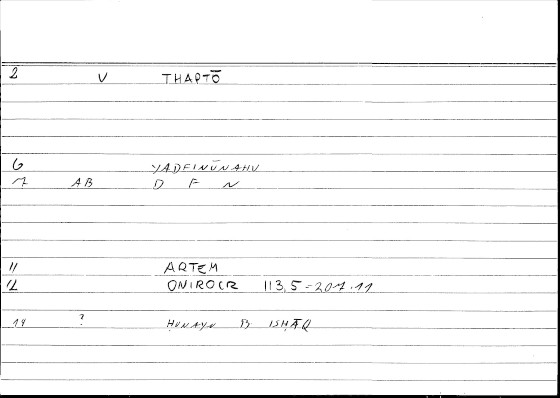 2 V THAPTŌ
6 YADFINŪNAHU
7 AB D F N
11 ARTEM
12 ONIROCR 113,5=207.11
14 ? ḤUNAYN B ISḤĀQ